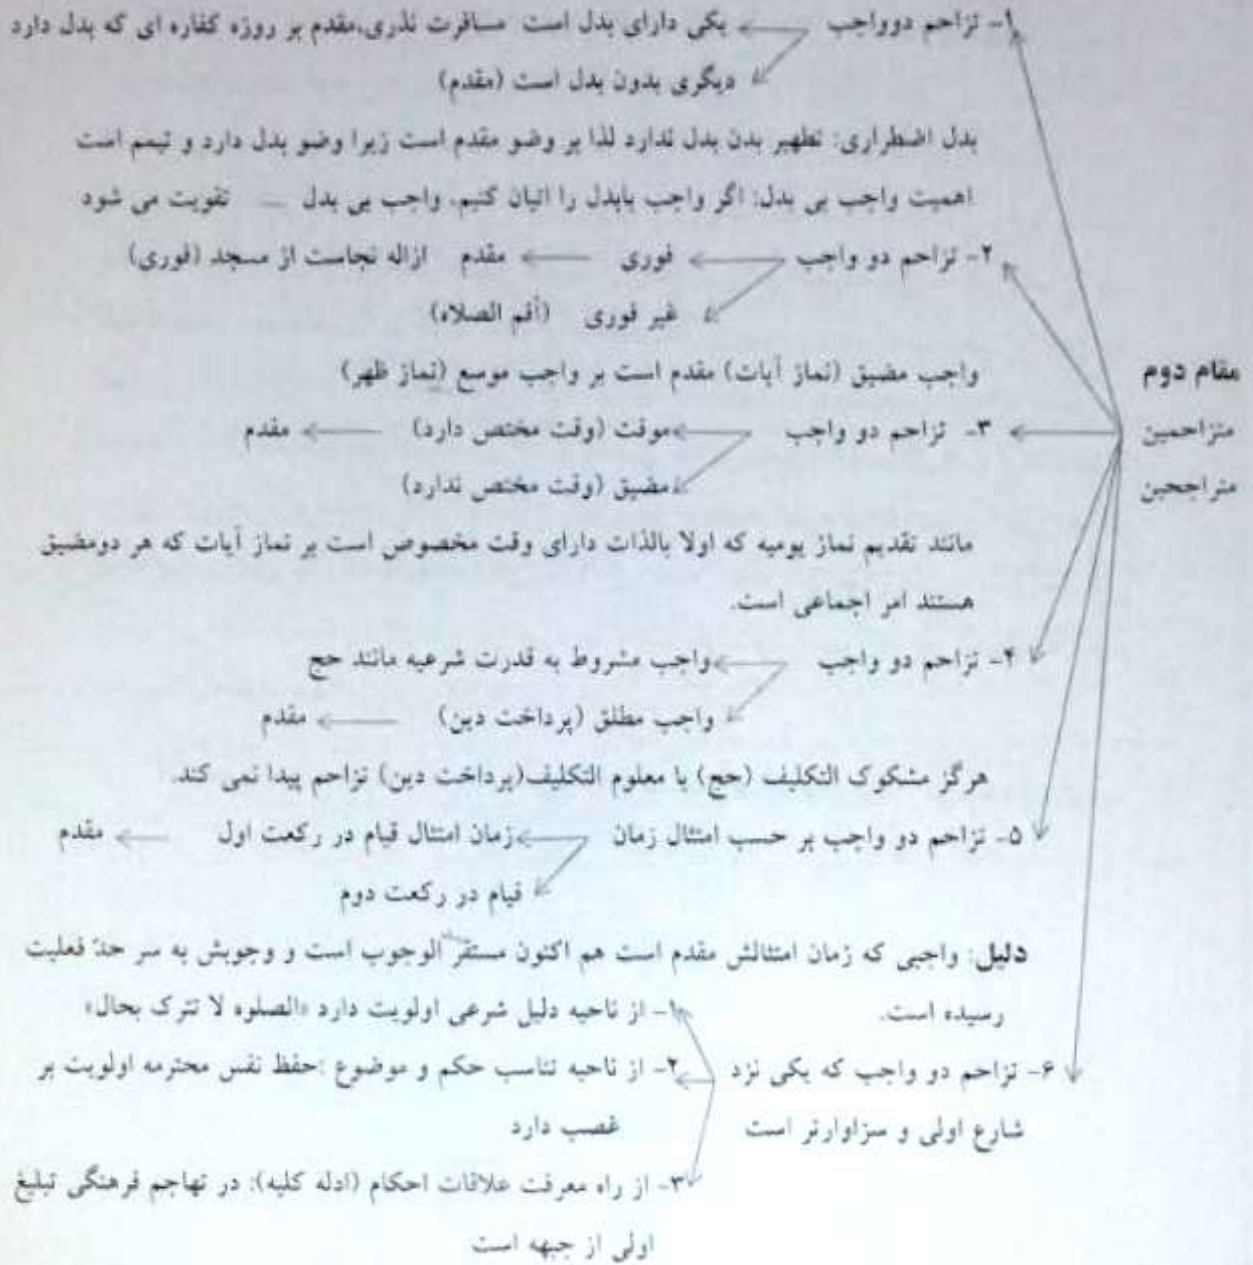 ۱- تزاحم دوواجب یکی دارای بدل است مسافرت نذری،مقدم بر روزه کفاره ای که بدل دارد
دیگری بدون بدل است (مقدم)
بدل اضطراری: تطهیر بدن بدل ندارد لذا بر وضو مقدم است زیرا وضو بدل دارد و تیمم است
اهمیت واجب بی بدل: اگر واجب بابدل را اتیان کنیم، واجب بی بدل تفویت می شود
۲- تزاحم دو واجب فوری مقدم ازاله نجاست از مسجد (فوری)
غیر فوری (أقم الصلاه)
مقام دوم
واجب مضیق (نماز آیات) مقدم است بر واجب موسع (نماز ظهر)
متزاحمین
۳- تزاحم دو واجب موقت (وقت مختص دارد) مقدم
متراجحین
مضیق (وقت مختص ندارد)
مانند تقدیم نماز یومیه که اولا بالذات دارای وقت مخصوص است بر نماز آیات که هر دومضیق
هستند امر اجماعی است.
۴- تزاحم دو واجب واجب مشروط به قدرت شرعیه مانند حج
واجب مطلق (پرداخت دین) مقدم
هرگز مشکوک التکلیف (حج) با معلوم التکلیف(پرداخت دین) تزاحم پیدا نمی کند.
۵- تزاحم دو واجب بر حسب امتثال زمان زمان امتثال قیام در رکعت اول مقدم
قیام در رکعت دوم
دلیل: واجبی که زمان امتثالش مقدم است هم اکنون مستقر الوجوب است و وجوبش به سر حدّ فعلیت
رسیده است.
۱- از ناحیه دلیل شرعی اولویت دارد «الصلوه لا تترک بحال»
۶- تزاحم دو واجب که یکی نزد
۲- از ناحیه تناسب حکم و موضوع :حفظ نفس محترمه اولویت بر
شارع اولی و سزاوارتر است
غصب دارد
۳- از راه معرفت علاقات احکام (ادله کلیه): در تهاجم فرهنگی تبلیغ
اولی از جبهه است